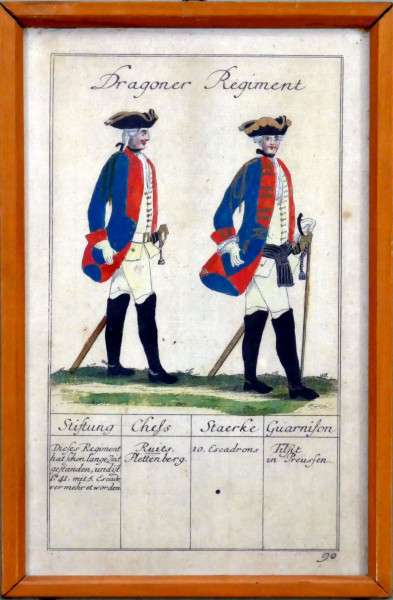 Dragoner Regiment
Stiftung Chefs Staerke Guarnison
Dieses Regiment
hat schon lange Zeit
gestanden, und ist
1741. mit 5. Escad
ver mehret worden
Ruits.
Plettenberg.
10. Escadrons
Tilsit
in Preussen.
90